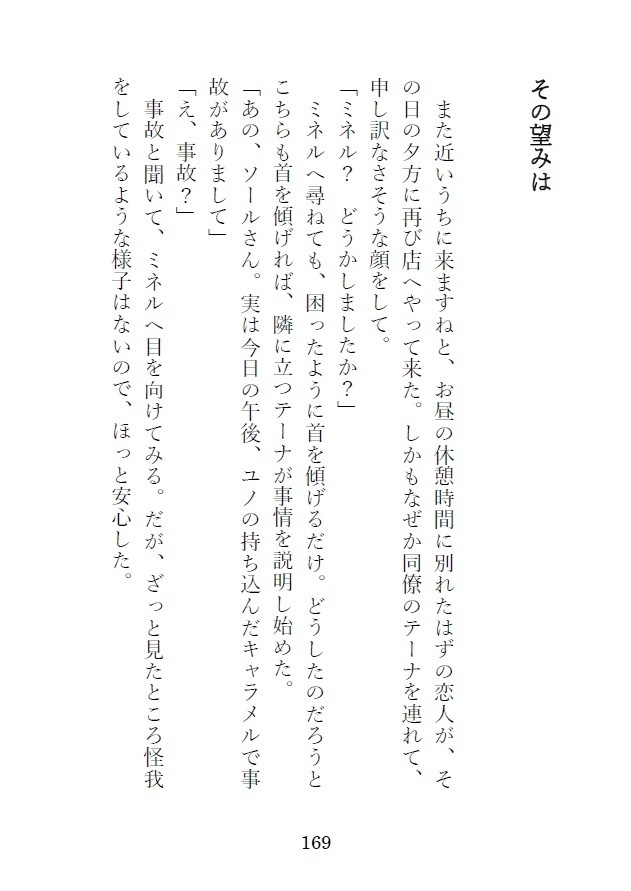 その望みは
また近いうちに来ますねと、お昼の休憩時間に別れたはずの恋人が、そ
の日の夕方に再び店へやって来た。しかもなぜか同僚のテーナを連れて、
申し訳なさそうな顔をして。
「ミネル？　どうかしましたか？」
ミネルへ尋ねても、困ったように首を傾げるだけ。どうしたのだろうと
こちらも首を傾げれば、隣に立つテーナが事情を説明し始めた。
「あの、ソールさん。実は今日の午後、ユノの持ち込んだキャラメルで事
故がありまして」
「え、事故？」
事故と聞いて、ミネルへ目を向けてみる。だが、ざっと見たところ怪我
をしているような様子はないので、ほっと安心した。
169